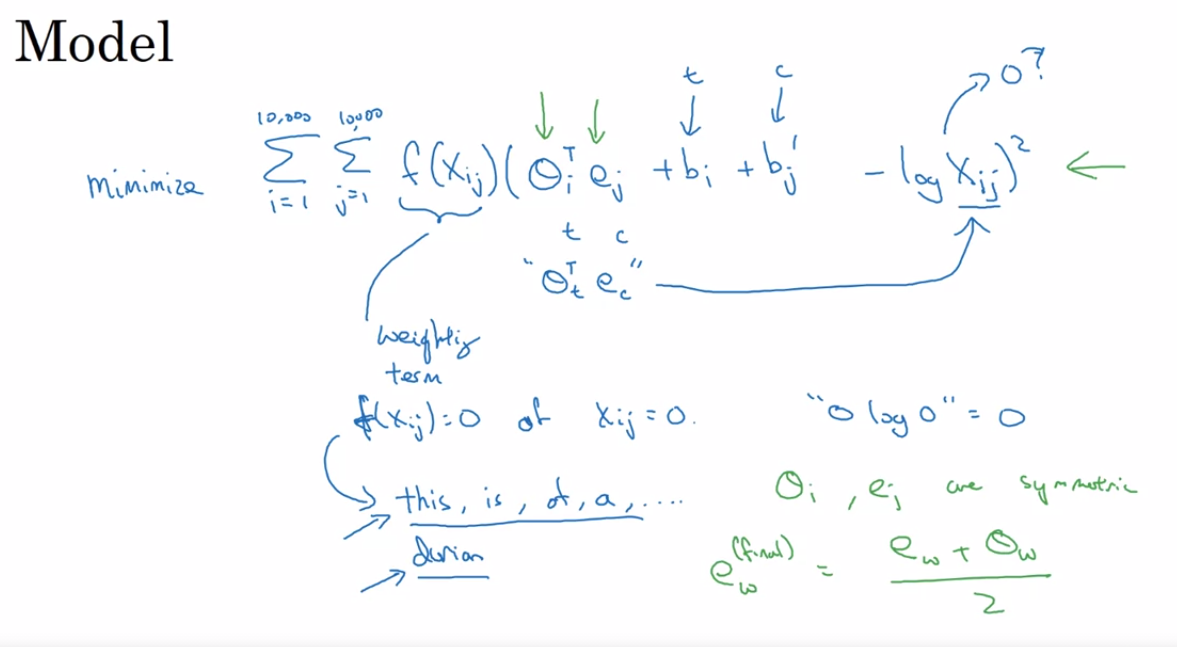 Model
t c 0?
10,000 10,000
minimize Σ Σ f(X_ij)(Θ_i^T e_j + b_i + b_j' - log X_ij)^2
i=1 j=1
t c
"Θ_t^T e_c"
weighting
term
f(X_ij)=0 if X_ij=0. "0 log 0" = 0
this, is, of, a, ....
durian
Θ_i, e_j are symmetric
e_w^(final) = (e_w + Θ_w) / 2